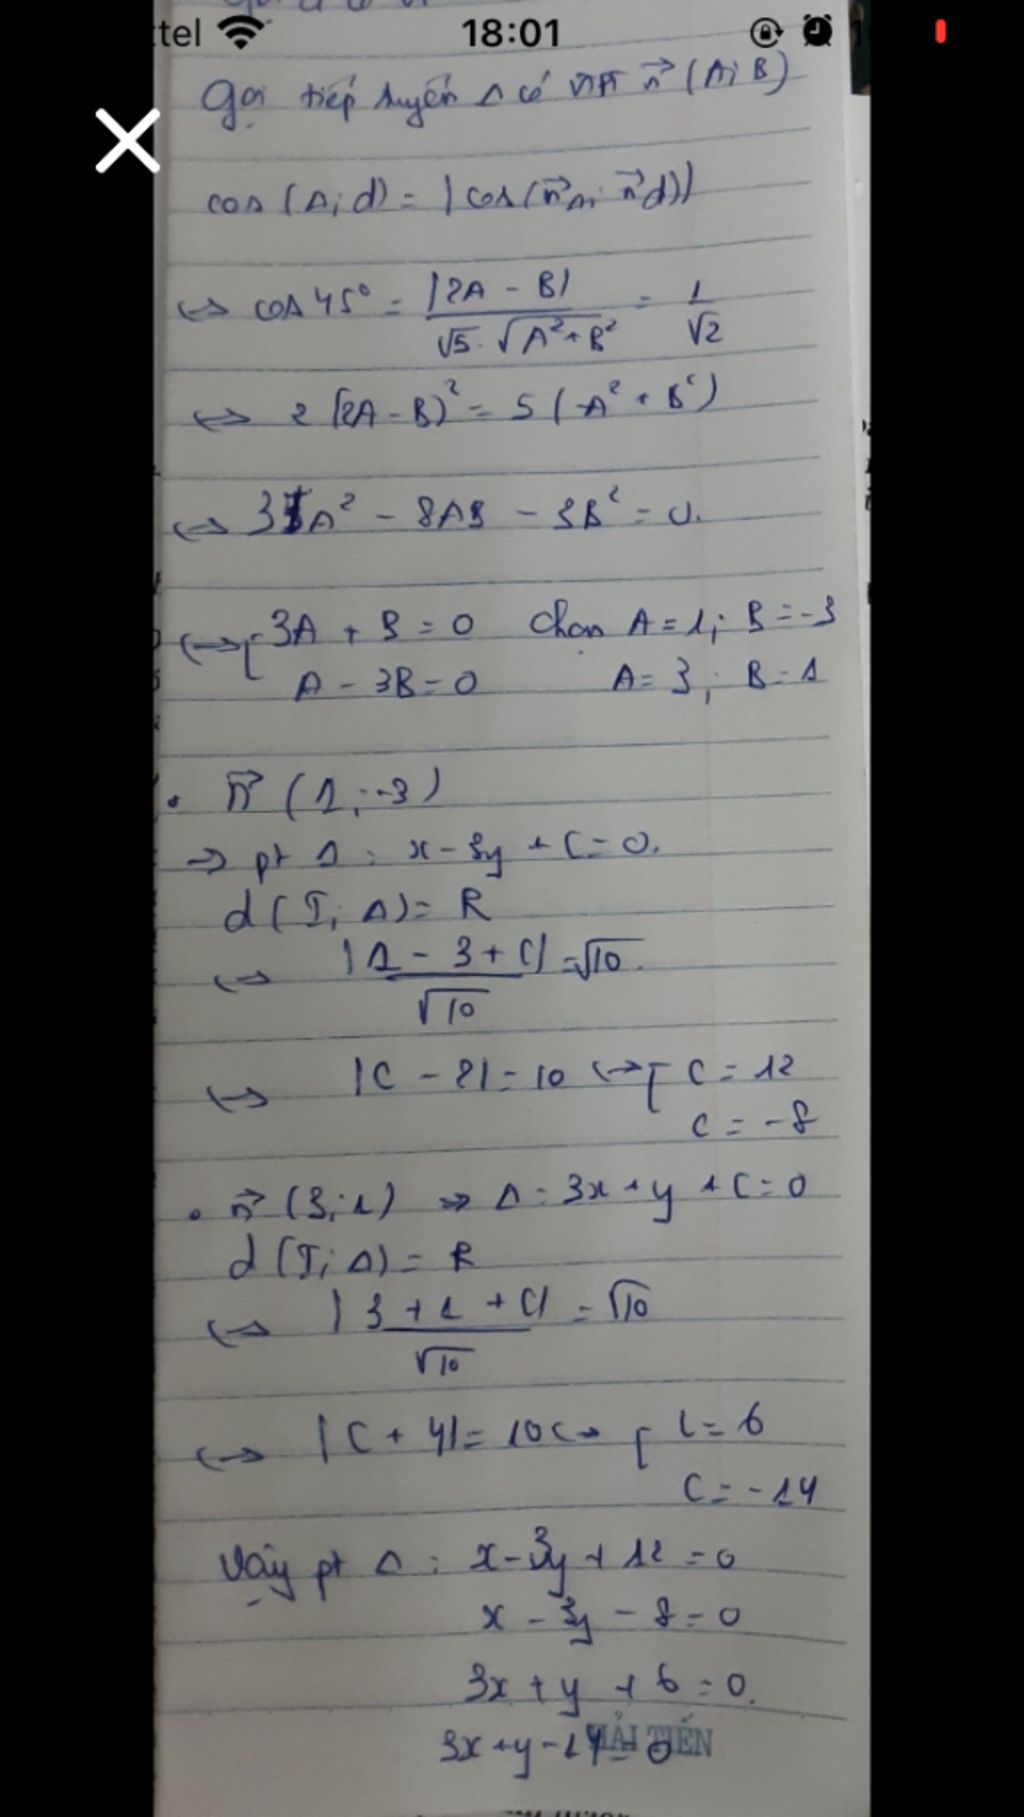 tel 18:01
Gọi tiếp tuyến Δ có VTPT n⃗ (A; B)
cos (Δ; d) = |cos(n⃗Δ; n⃗d)|
↔ cos 45° = |2A - B| / √5 · √A² + B² = 1/√2
↔ 2 (2A - B)² = 5 (A² + B²)
↔ 3A² - 8AB - 3B² = 0.
↔ [ 3A + B = 0 Chọn A = 1; B = -3
A - 3B = 0 A = 3; B = 1
• n⃗ (1; -3)
⇒ pt Δ: x - 3y + C = 0.
d (I; Δ) = R
↔ |1 - 3 + C| / √10 = √10.
↔ |C - 2| = 10 ↔ [ C = 12
C = -8
• n⃗ (3; 1) ⇒ Δ: 3x + y + C = 0
d (I; Δ) = R
↔ |3 + 1 + C| / √10 = √10
↔ |C + 4| = 10 ↔ [ C = 6
C = -14
Vậy pt Δ: x - 3y + 12 = 0
x - 3y - 8 = 0
3x + y + 6 = 0.
3x + y - 14 = 0
HẢI TIẾN